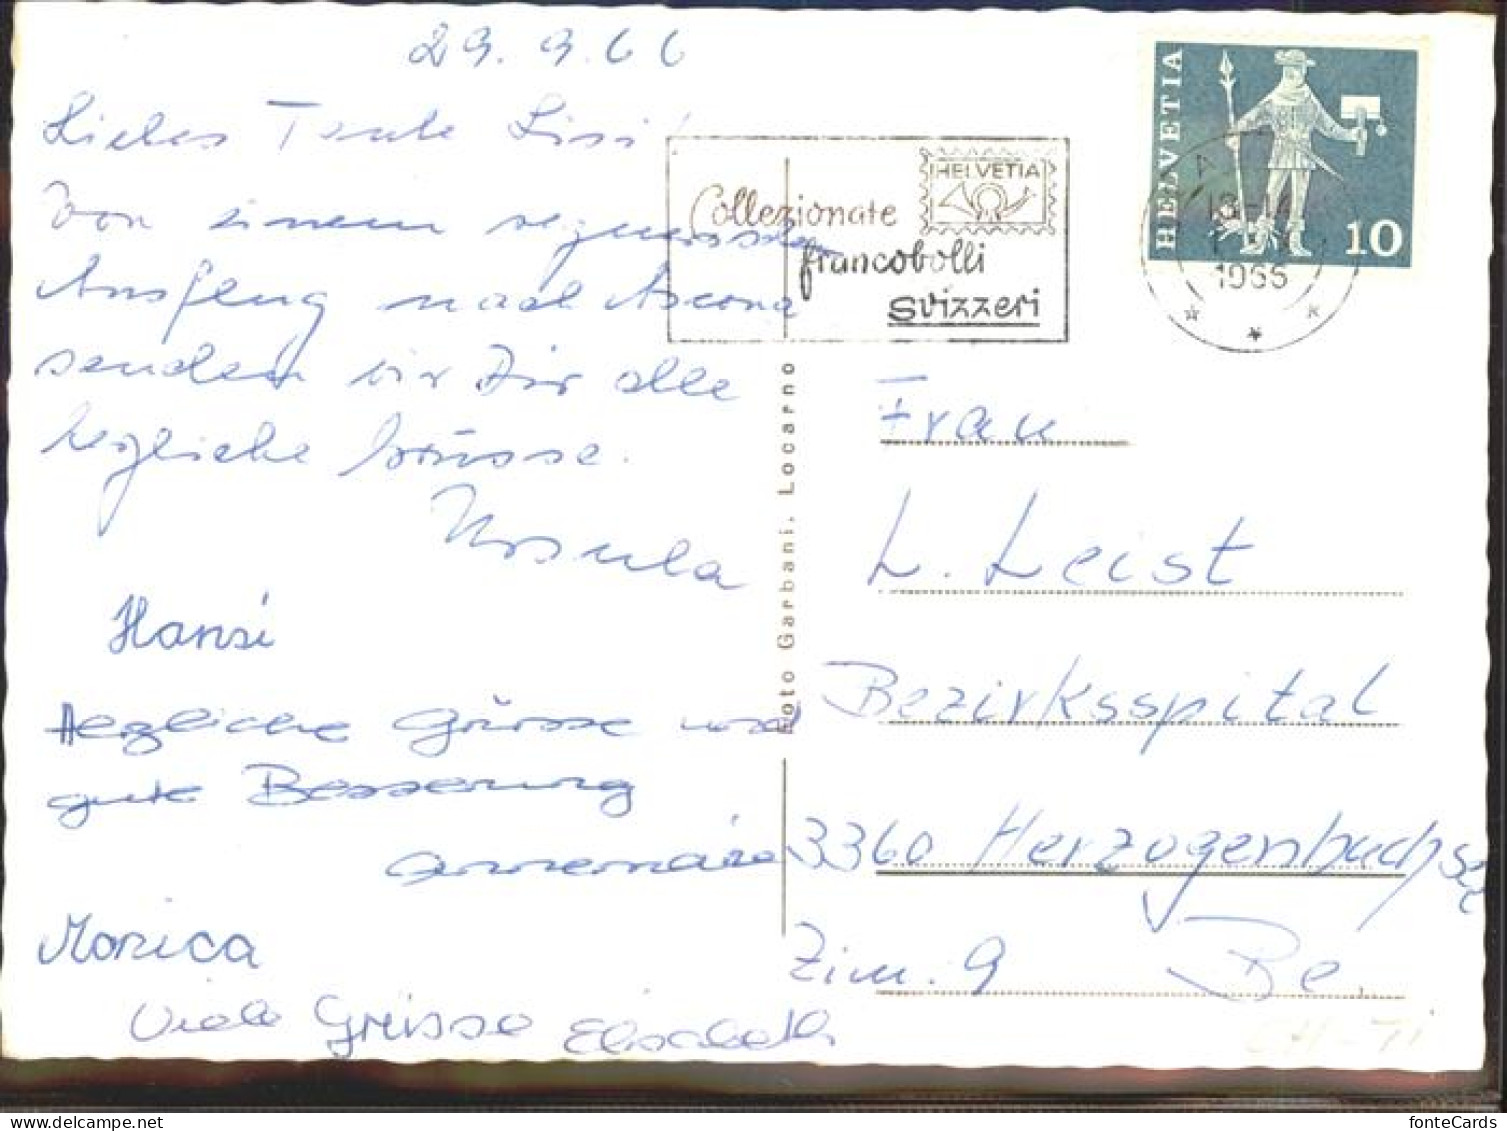 29.9.66
Liebes Tante Lisi!
Von einem
Ausflug nach Ascona
senden wir Dir alle
herzliche Grüsse.
Ursula
Hansi
Herzliche Grüsse und
gute Besserung
Annemarie
Monica
Viele Grüsse Elisabeth
Collezionate
francobolli
svizzeri
HELVETIA
HELVETIA
10
1966
Foto Garbani, Locarno
Frau
L. Leist
Bezirksspital
3360 Herzogenbuchsee
Zim. 9 Be
CH-TI
fonteCards